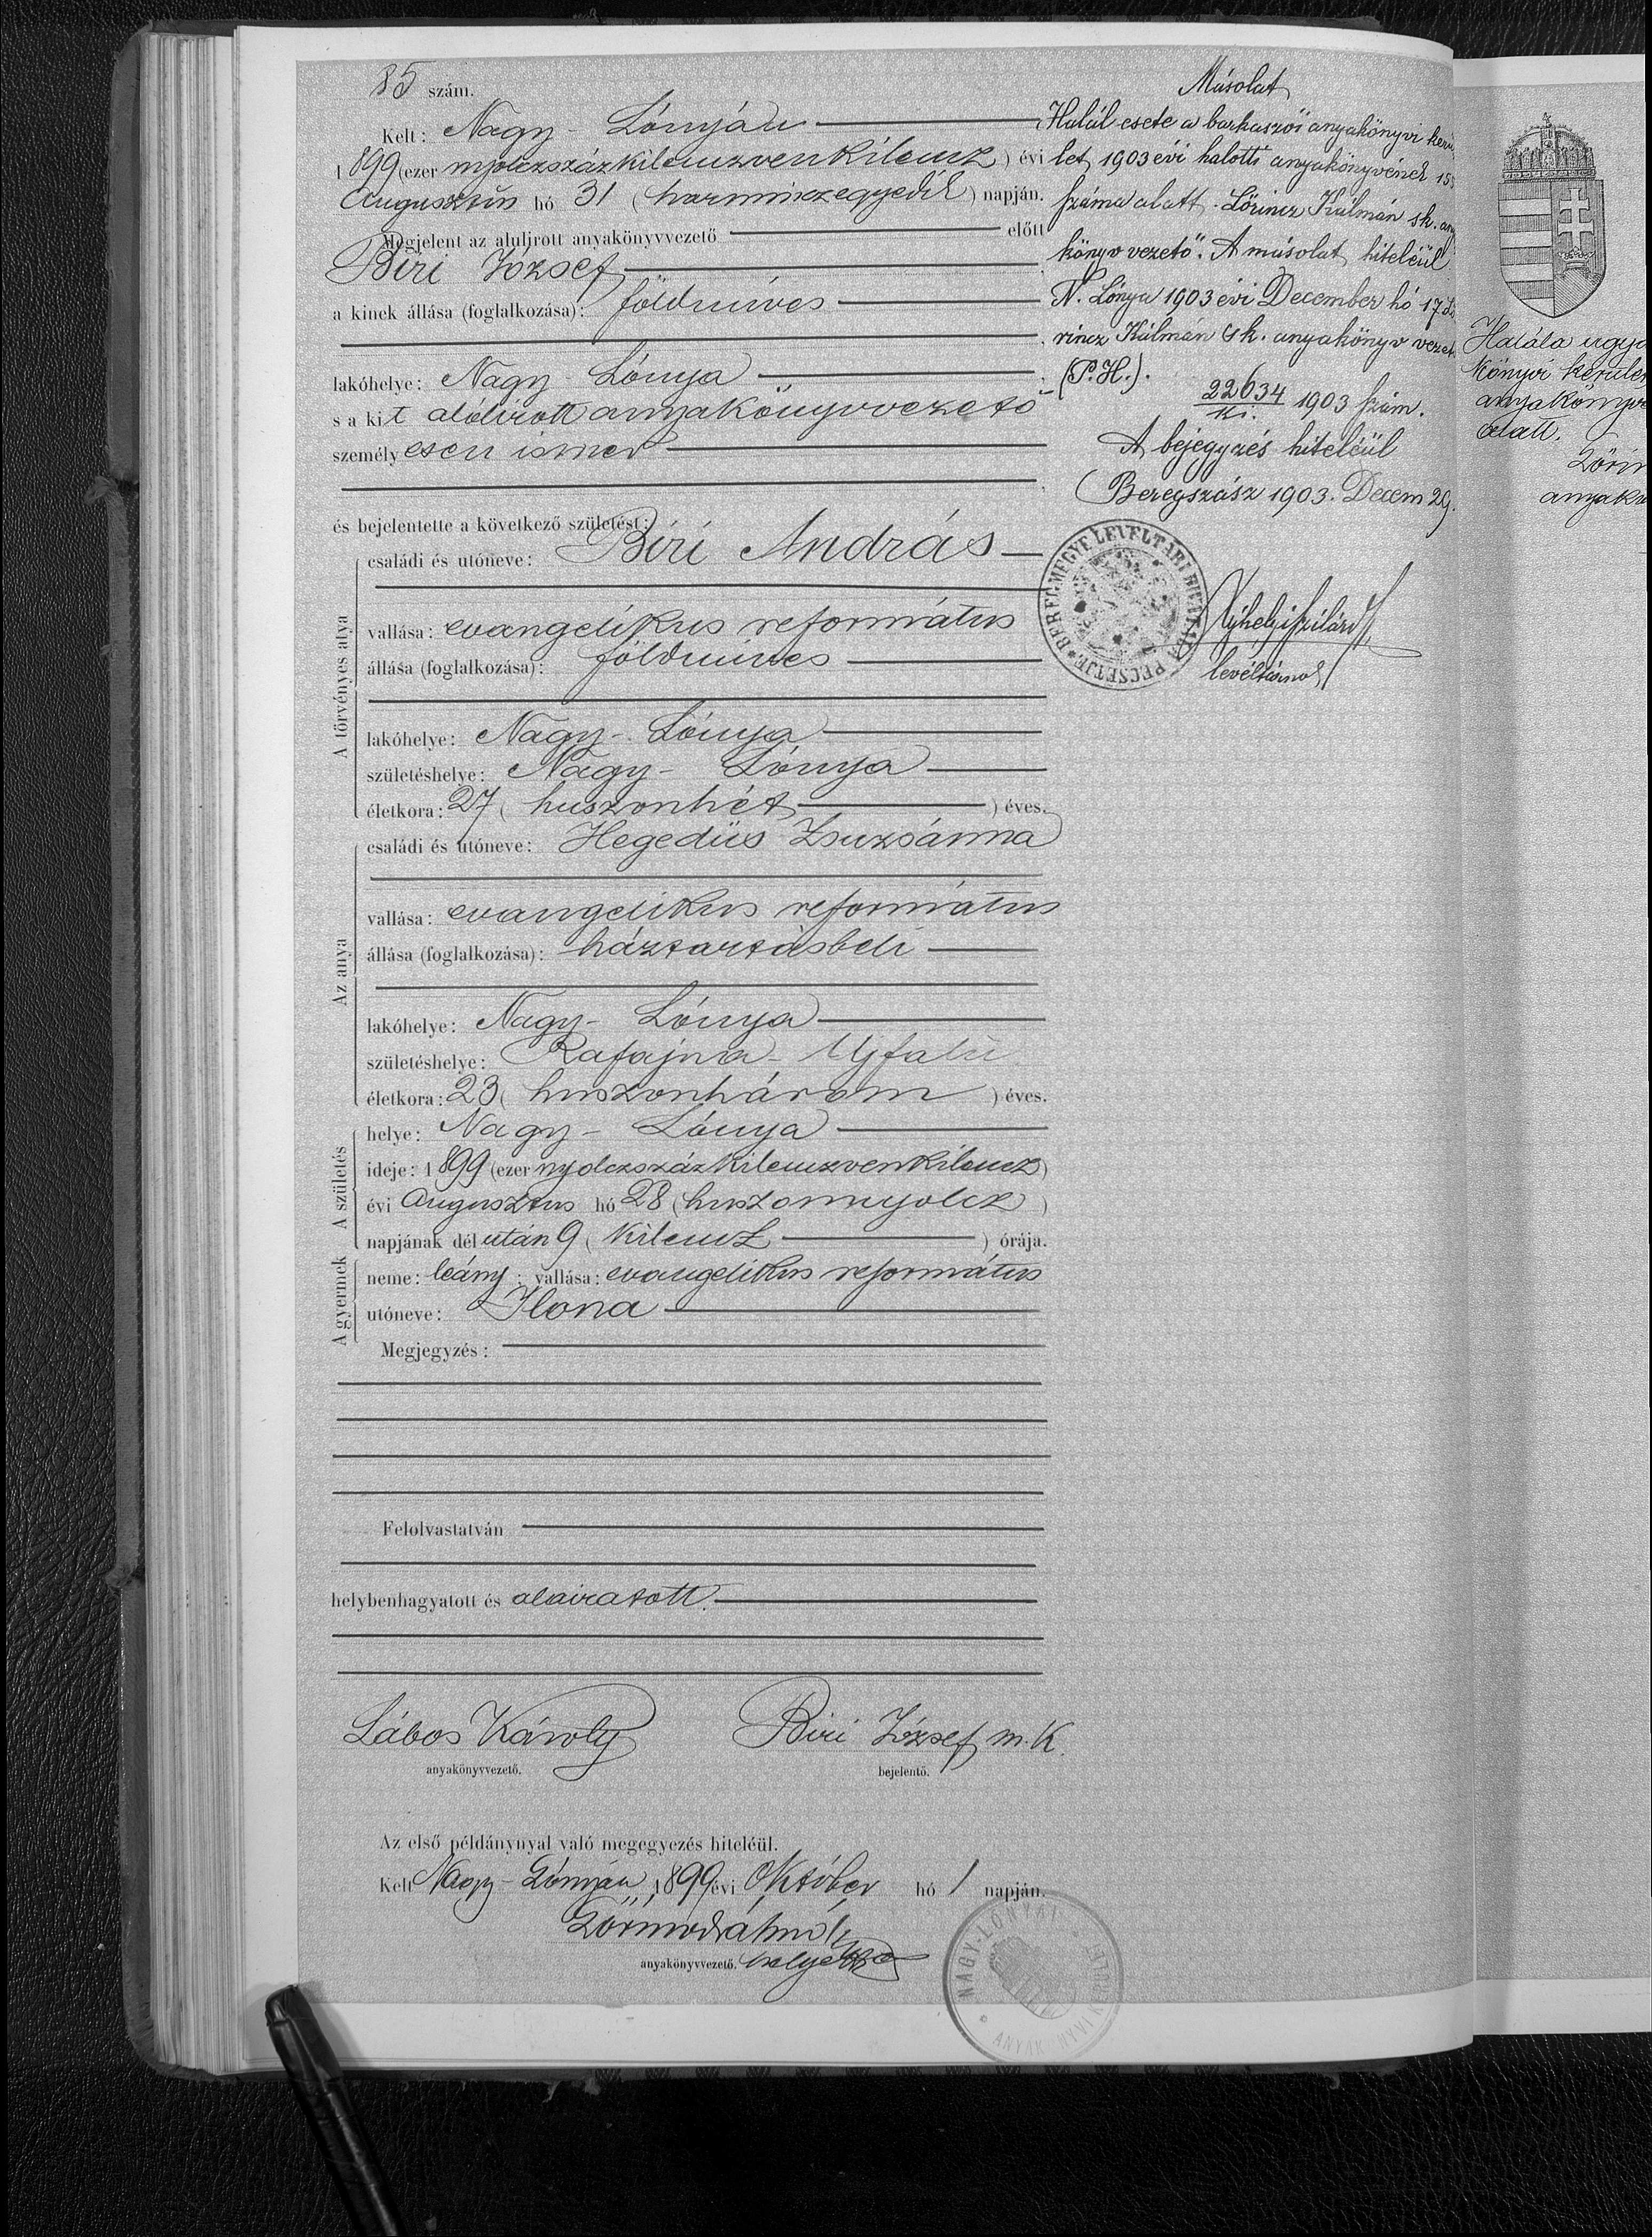 85 szám.
Kelt: Nagy-Lónyán
1899 (ezer nyolczszázkilenczvenkilencz) évi
Augusztus hó 31 (harminczegyedik) napján.
Megjelent az alulirott anyakönyvvezető előtt
Biri József
a kinek állása (foglalkozása): földmives
lakóhelye: Nagy-Lónya
s a kit alólirott anyakönyvvezető
személyesen ismer
és bejelentette a következő születést:
A törvényes atya
családi és utóneve: Biri András
vallása: evangelikus református
állása (foglalkozása): földmives
lakóhelye: Nagy-Lónya
születéshelye: Nagy-Lónya
életkora: 27 (huszonhét) éves.
Az anya
családi és utóneve: Hegedüs Zsuzsánna
vallása: evangelikus református
állása (foglalkozása): háztartásbeli
lakóhelye: Nagy-Lónya
születéshelye: Rafajna-Ujfalu
életkora: 23 (huszonhárom) éves.
A születés
helye: Nagy-Lónya
ideje: 1899 (ezer nyolczszázkilenczvenkilencz)
évi Augusztus hó 28 (huszonnyolcz)
napjának dél után 9 (kilencz) órája.
A gyermek
neme: leány; vallása: evangelikus református
utóneve: Ilona
Megjegyzés:
Felolvastatván
helybenhagyatott és aláiratott.
Lábos Károly
anyakönyvvezető.
Biri József m.k.
bejelentő.
Az első példánynyal való megegyezés hiteléül.
Kelt Nagy-Lónyán, 1899 évi Október hó 1 napján.
anyakönyvvezető. helyettes
NAGY-LÓNYAI ANYAKÖNYVI KERÜLET
Másolat
Halál esete a barkaszói anyakönyvi kerü
let 1903 évi halotti anyakönyvének 15
száma alatt. Lőrincz Kálmán sk. any
könyvvezető". A másolat hiteléül
N. Lónya 1903 évi December hó 17. Lő
rincz Kálmán sk. anyakönyvvezet
(P.H.).
22634/ki. 1903 szám.
A bejegyzés hiteléül
Beregszász 1903. Decem 29.
BEREGMEGYE LEVÉLTÁRI HIVATAL PECSÉTJE
Ujhelyi Szilárd
levéltárnok
Halála ugya
könyvi kerüle
anyakönyv
alatt.
Lőrin
anyakö